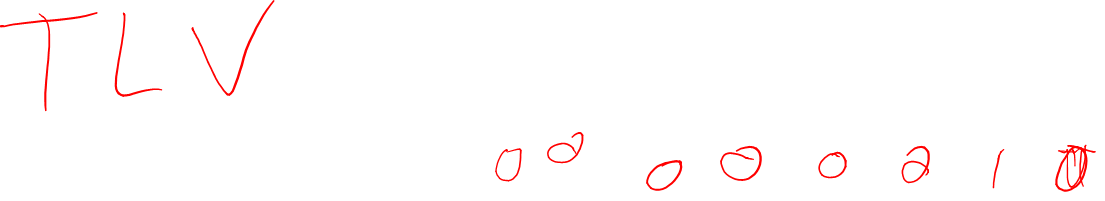 TLV
00 0 0 0 0 1 0